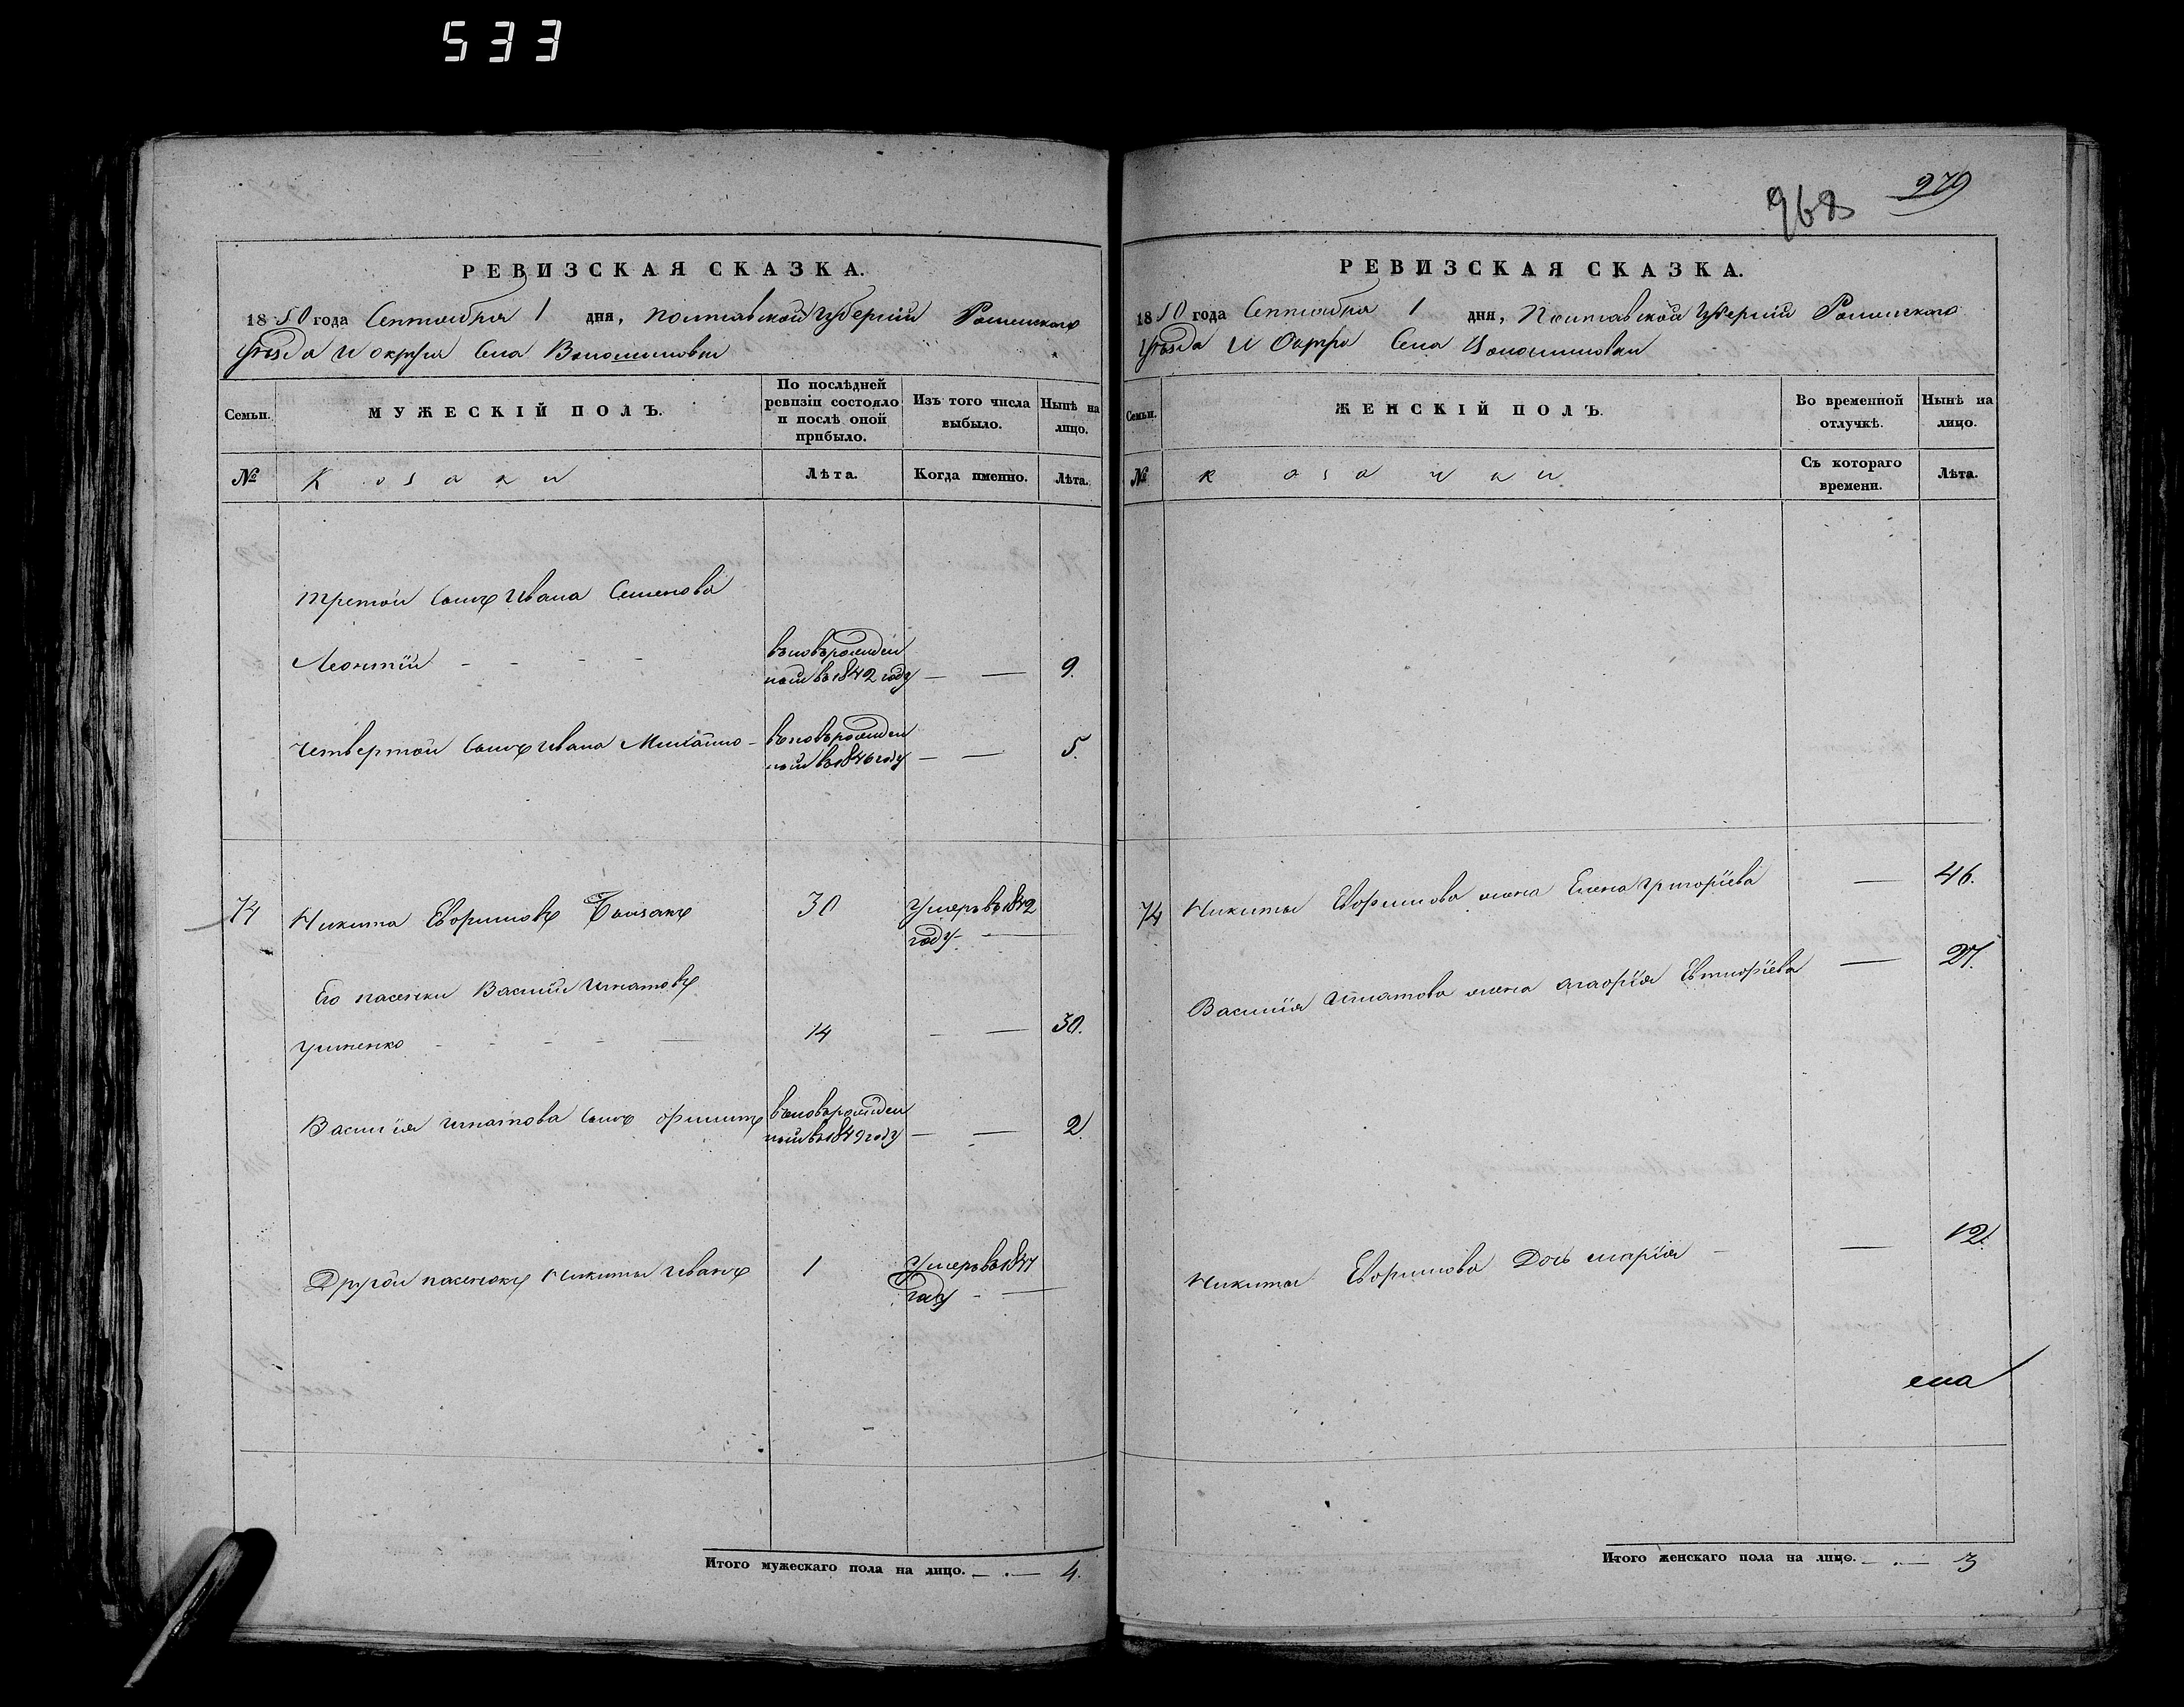 533
968
979
РЕВИЗСКАЯ СКАЗКА.
1850 года Сентября 1 дня, Полтавской Губерніи Роменского
Уѣзда и округа Села Волошиновки
Семьи. МУЖЕСКІЙ ПОЛЪ. По послѣдней ревизіи состояло и послѣ оной прибыло. Изъ того числа выбыло. Нынѣ на лицо.
№ Козаки Лѣта. Когда именно. Лѣта.
третой Сынъ Ивана Семенова
Леонтій - - - - вновърожден
ный въ 1842 году — — 9.
четвертой Сынъ Ивана Михайло - вновърожден
ный въ 1846 году — — 5.
74 Никита Ефимовъ 30 Умеръ въ 1842
году - —
Его пасенки Василий Игнатовъ
14 — — 30.
Василія Игнатова Сынъ Филипъ вновърожден
ный въ 1849 году — — 2.
Другой пасенокъ Никиты Иванъ 1 Умеръ въ 1847
году - —
Итого мужескаго пола на лицо. — . — 4.
РЕВИЗСКАЯ СКАЗКА.
1850 года Сентября 1 дня, Полтавской Губерніи Роменского
Уѣзда и Округа Села Волошиновки
Семьи. ЖЕНСКІЙ ПОЛЪ. Во временной отлучкѣ. Нынѣ на лицо.
№ Козачки Съ котораго времени. Лѣта.
74 Никиты жена Елена Григоріева — 46.
Василія Игнатова жена Агафія — 27.
Никиты дочь Марія - — 12.
Итого женскаго пола на лицо. — . — 3